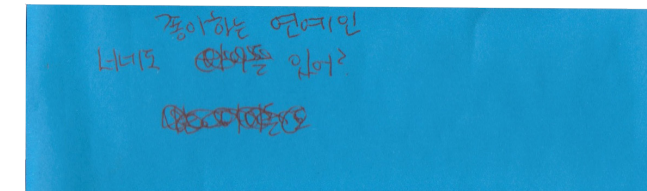 좋아하는 연예인
너네도 있어?